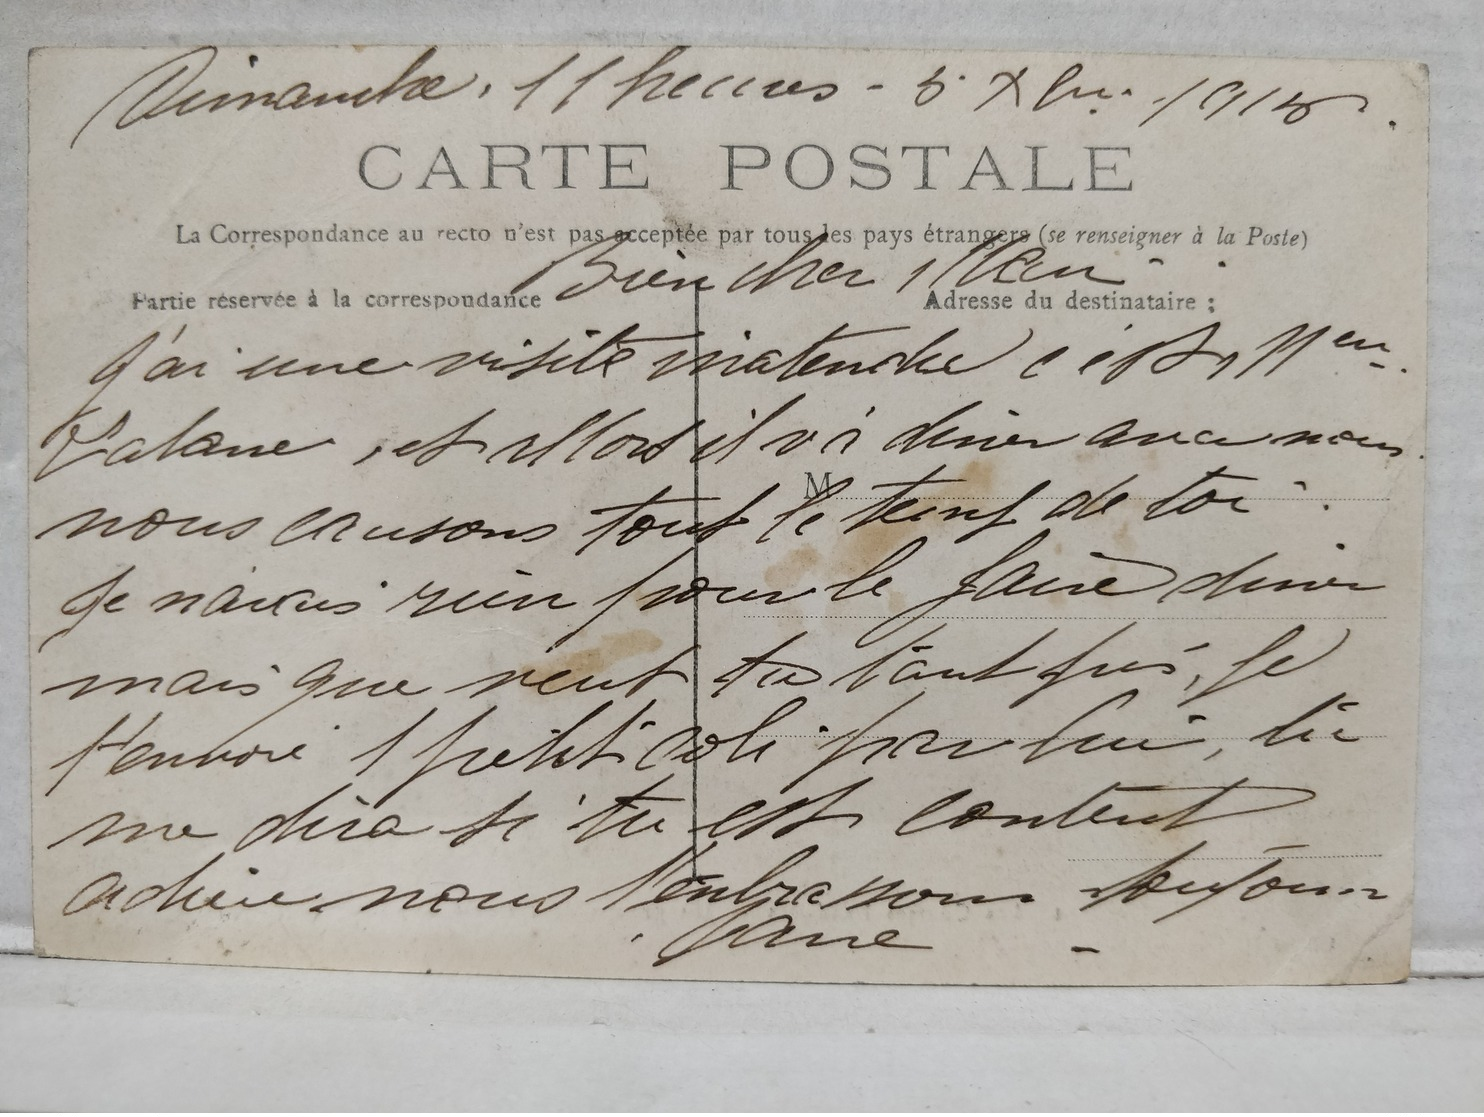 Dimanche, 11 heures - 5 Xbre 1915.
CARTE POSTALE
La Correspondance au recto n'est pas acceptée par tous les pays étrangers (se renseigner à la Poste)
Bien cher
Partie réservée à la correspondance
Adresse du destinataire :
j'ai une visite inatendue c'est Mr
et allors il va diner avec nous
M
nous causons tout le temp de toi.
Je navais rien pour le faire diner
mais que veut tu tant pis, je
t'envoie 1 petit coli par lui, tu
me dira si tu est content
adieu nous t'enbrassons toujours
Jane